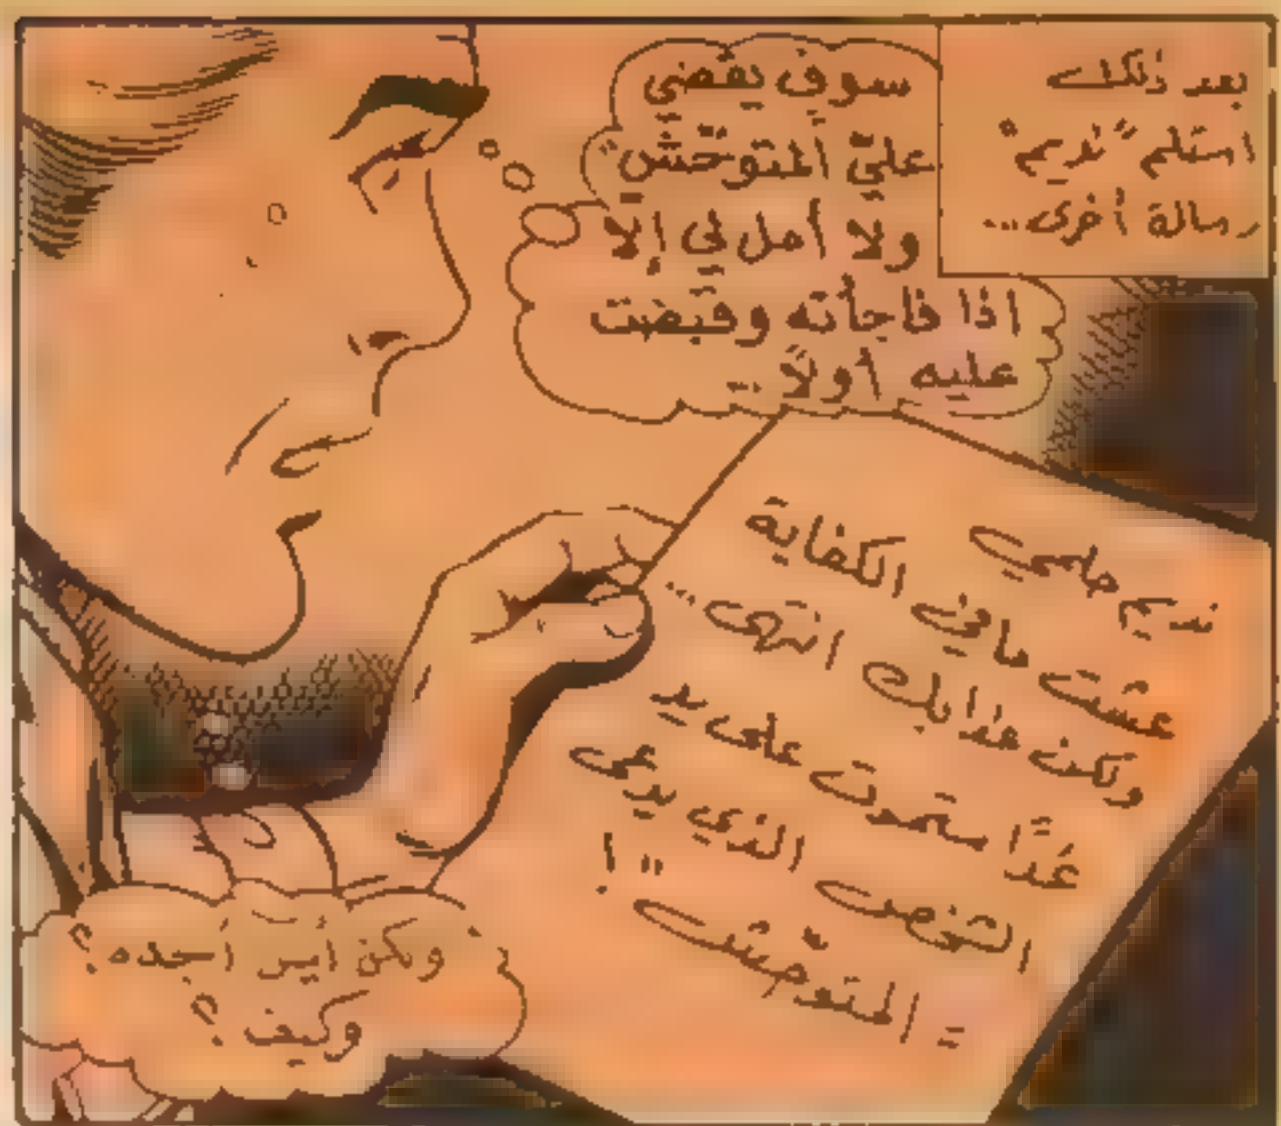 بعد ذلك
استلم "نديم"
رسالة أخرى...
سوف يقضي
عليّ المتوحّش"
ولا أمل لي إلا
اذا فاجأته وقبضت
عليه أولاً...
نديم حلمي
عشت ما في الكفاية
ولكن عذابك انتهى...
غدًا ستموت على يد
الشخص الذي يدعى
= المتوحّش "!
ولكن أين أجده؟
وكيف؟